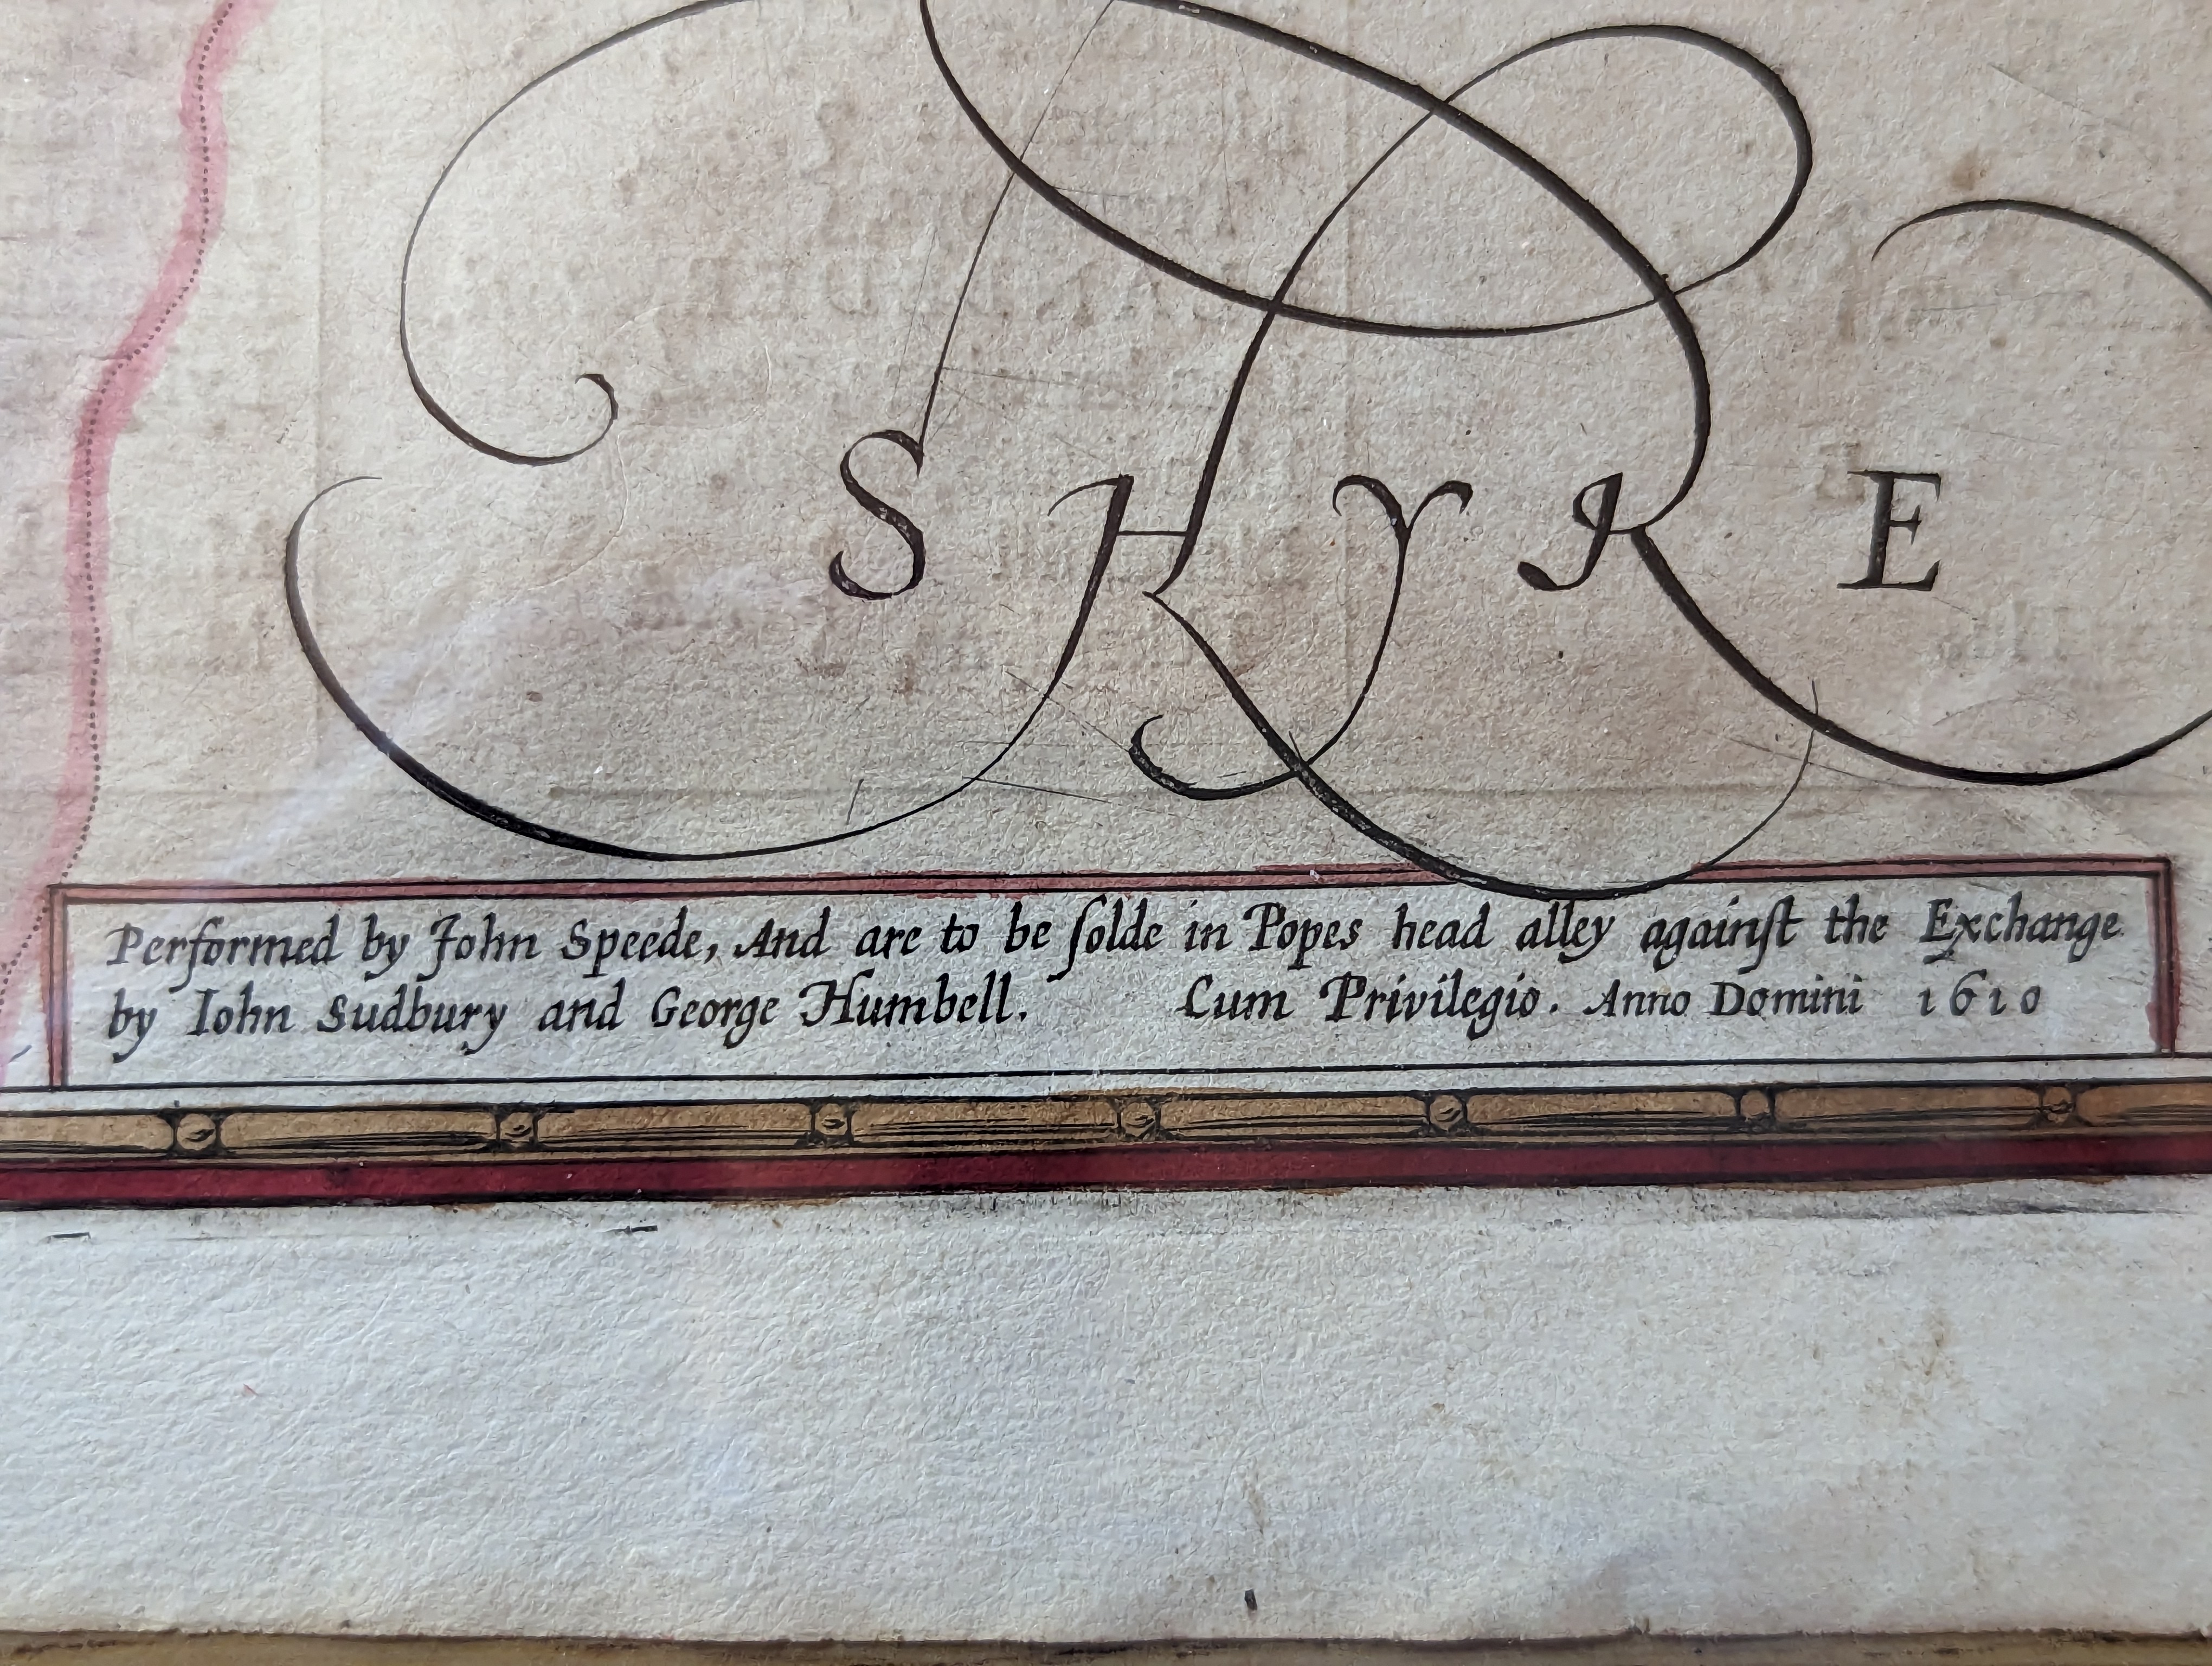 SHYRE
Performed by John Speede, And are to be ſolde in Popes head alley againſt the Exchange
by Iohn Sudbury and George Humbell. Cum Privilegio. Anno Domini 1610